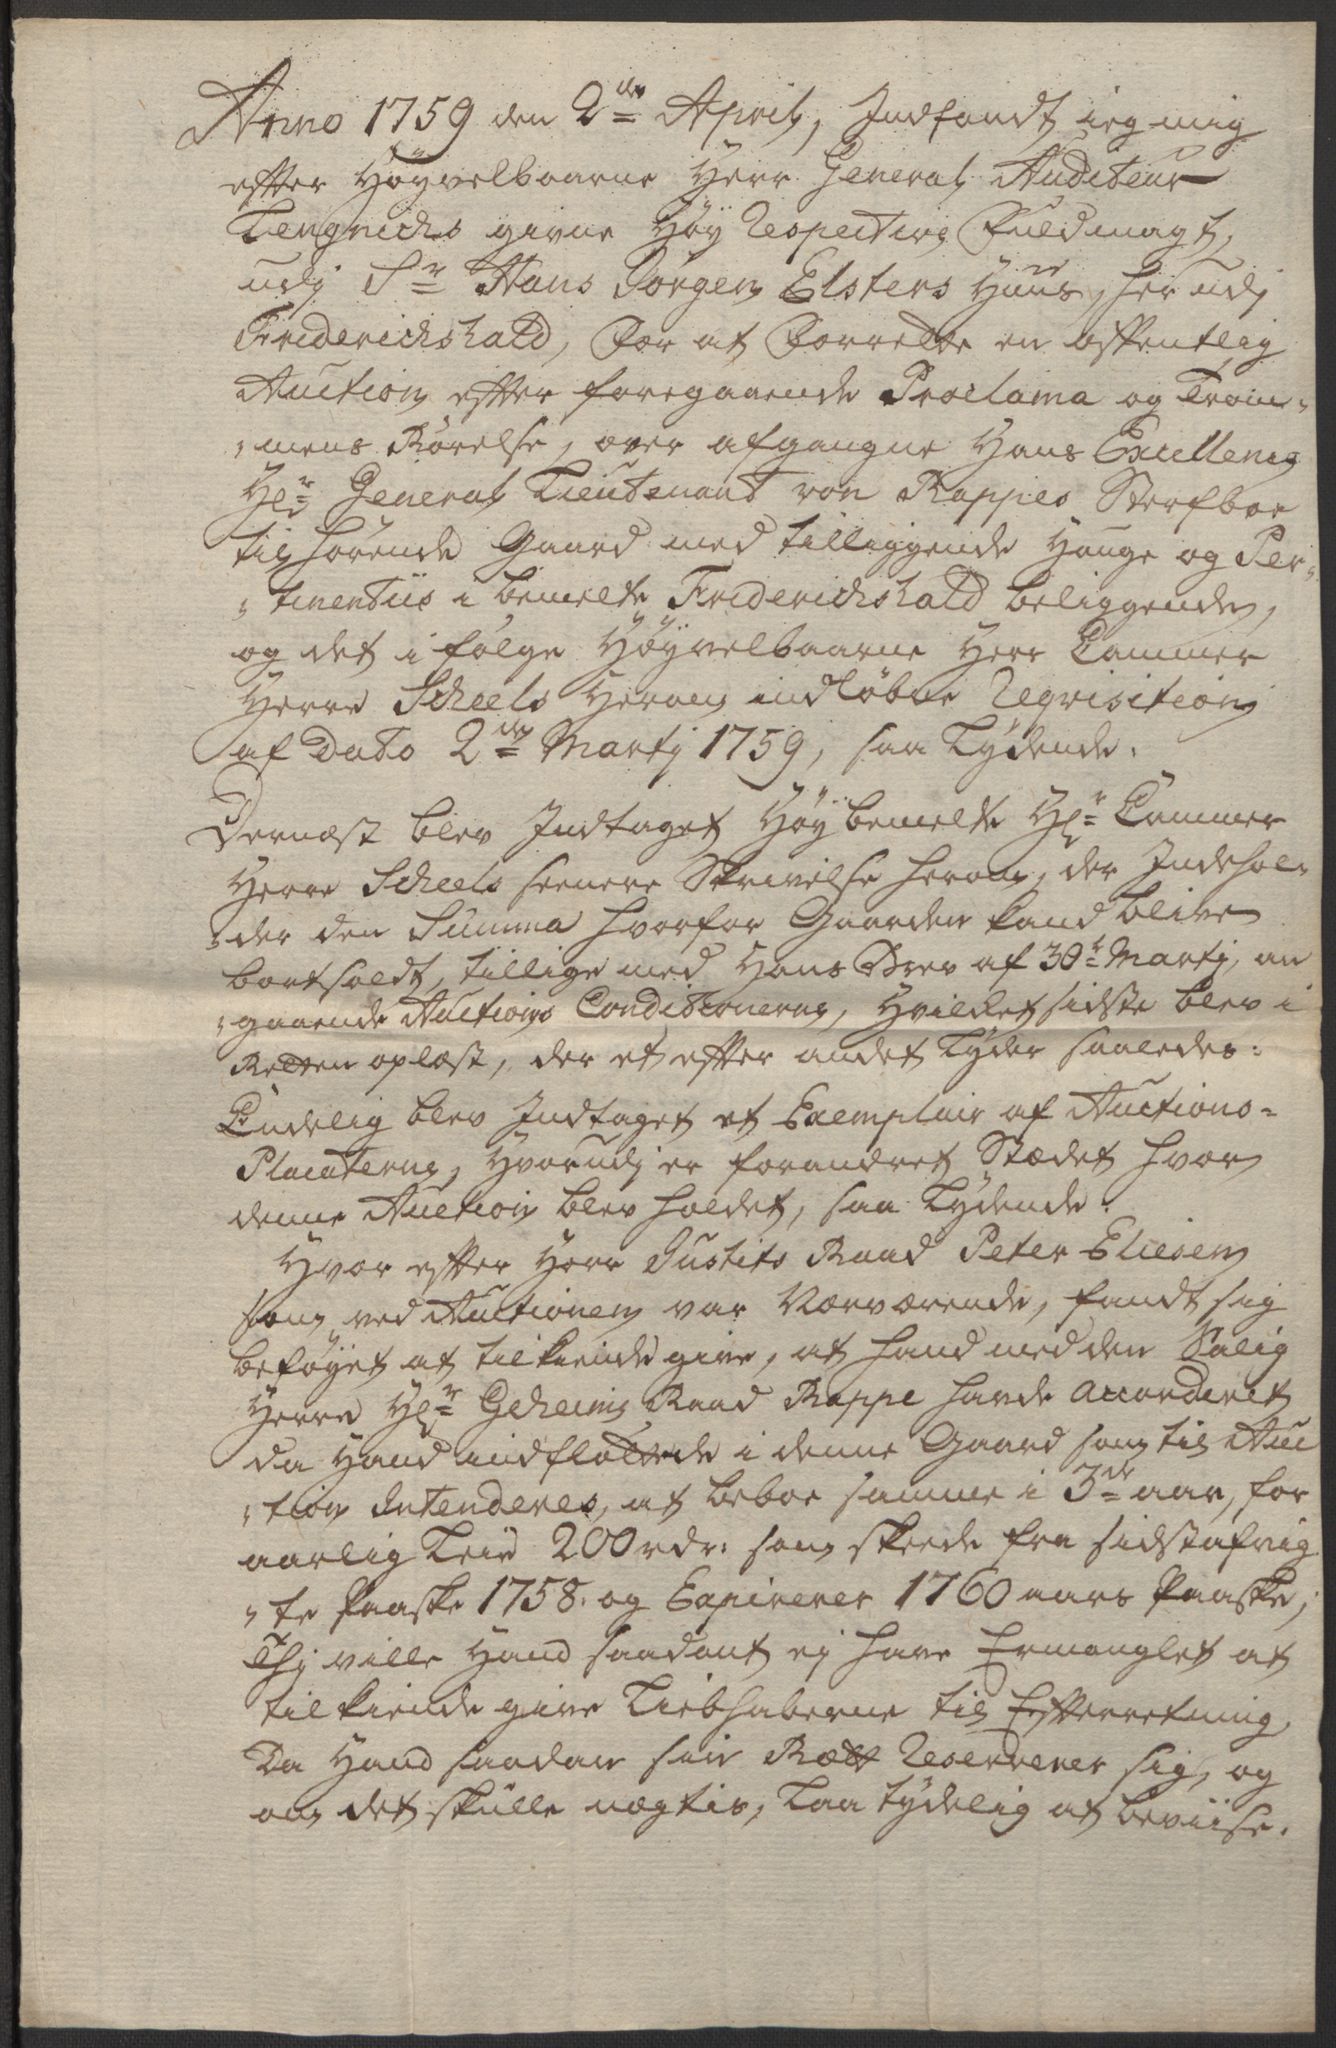 Anno 1759 den 2den April, Indfandt ieg mig
efter Höyvelbaarne Herr General Auditeur
Lengnicks givne Höy Respective Fuldmagt,
udj Sr Hans Jörgen Elsters Huus, her udj
Friderichshald, for at Forrette en offentlig
Auction efter foregaaende Proclama og Trom-
-mens Rörelse, over afgangne Hans Excellence
Hr General Lieutenant von Rappes Sterfboe
tilhörende Gaard med tilliggende Hauge og Per-
-tinentiis i bemelte Friderichshald beliggende,
og det i fölge Höyvelbaarne Herr Cammer
Herre Scheels herom indlöbne Reqvisition
af Dato 2den Martj 1759, saa Lydende.
Dernæst blev Indtaget Höybemelte Hr Cammer
Herre Scheels seenere Skrivelse herom, der Indehol-
-der den Summa hvorfor Gaarden kand blive
bortsoldt, tillige med Hans Brev af 30te Martj, an
-gaaende Auctions Conditionerne, Hvilket sidste blev i
Retten oplæst, der et efter andet Lyder saaledes:
Endelig blev Indtaget et Exemplair af Auctions-
Placaterne, Hvorudj er forandret Stædet hvor
denne Auction blev holdet, saa Lydende.
Hvor efter Herr Justits Raad Peter Eliesen
som ved Auctionen var Nærværende, fandt sig
beföyet at tilkiende give, at hand med den Salig
Herre Hr Geheime Raad Rappe havde Accorderet
da Hand indflöttede i denne Gaard som til Auc
-tion Intenderes, at beboe samme i 3de aar, for
aarlig Leie 200 rdr. som skeede fra sidstafvig
-te Paaske 1758. og Expirerer 1760 aars Paaske,
Thj ville Hand saadant ej have Ermanglet at
tilkiende give Liebhaberne til Efterretning,
Da Hand saadan sin Rætt Reserverer sig, og
om det skulle nægtis, Laa tydelig at beviise.